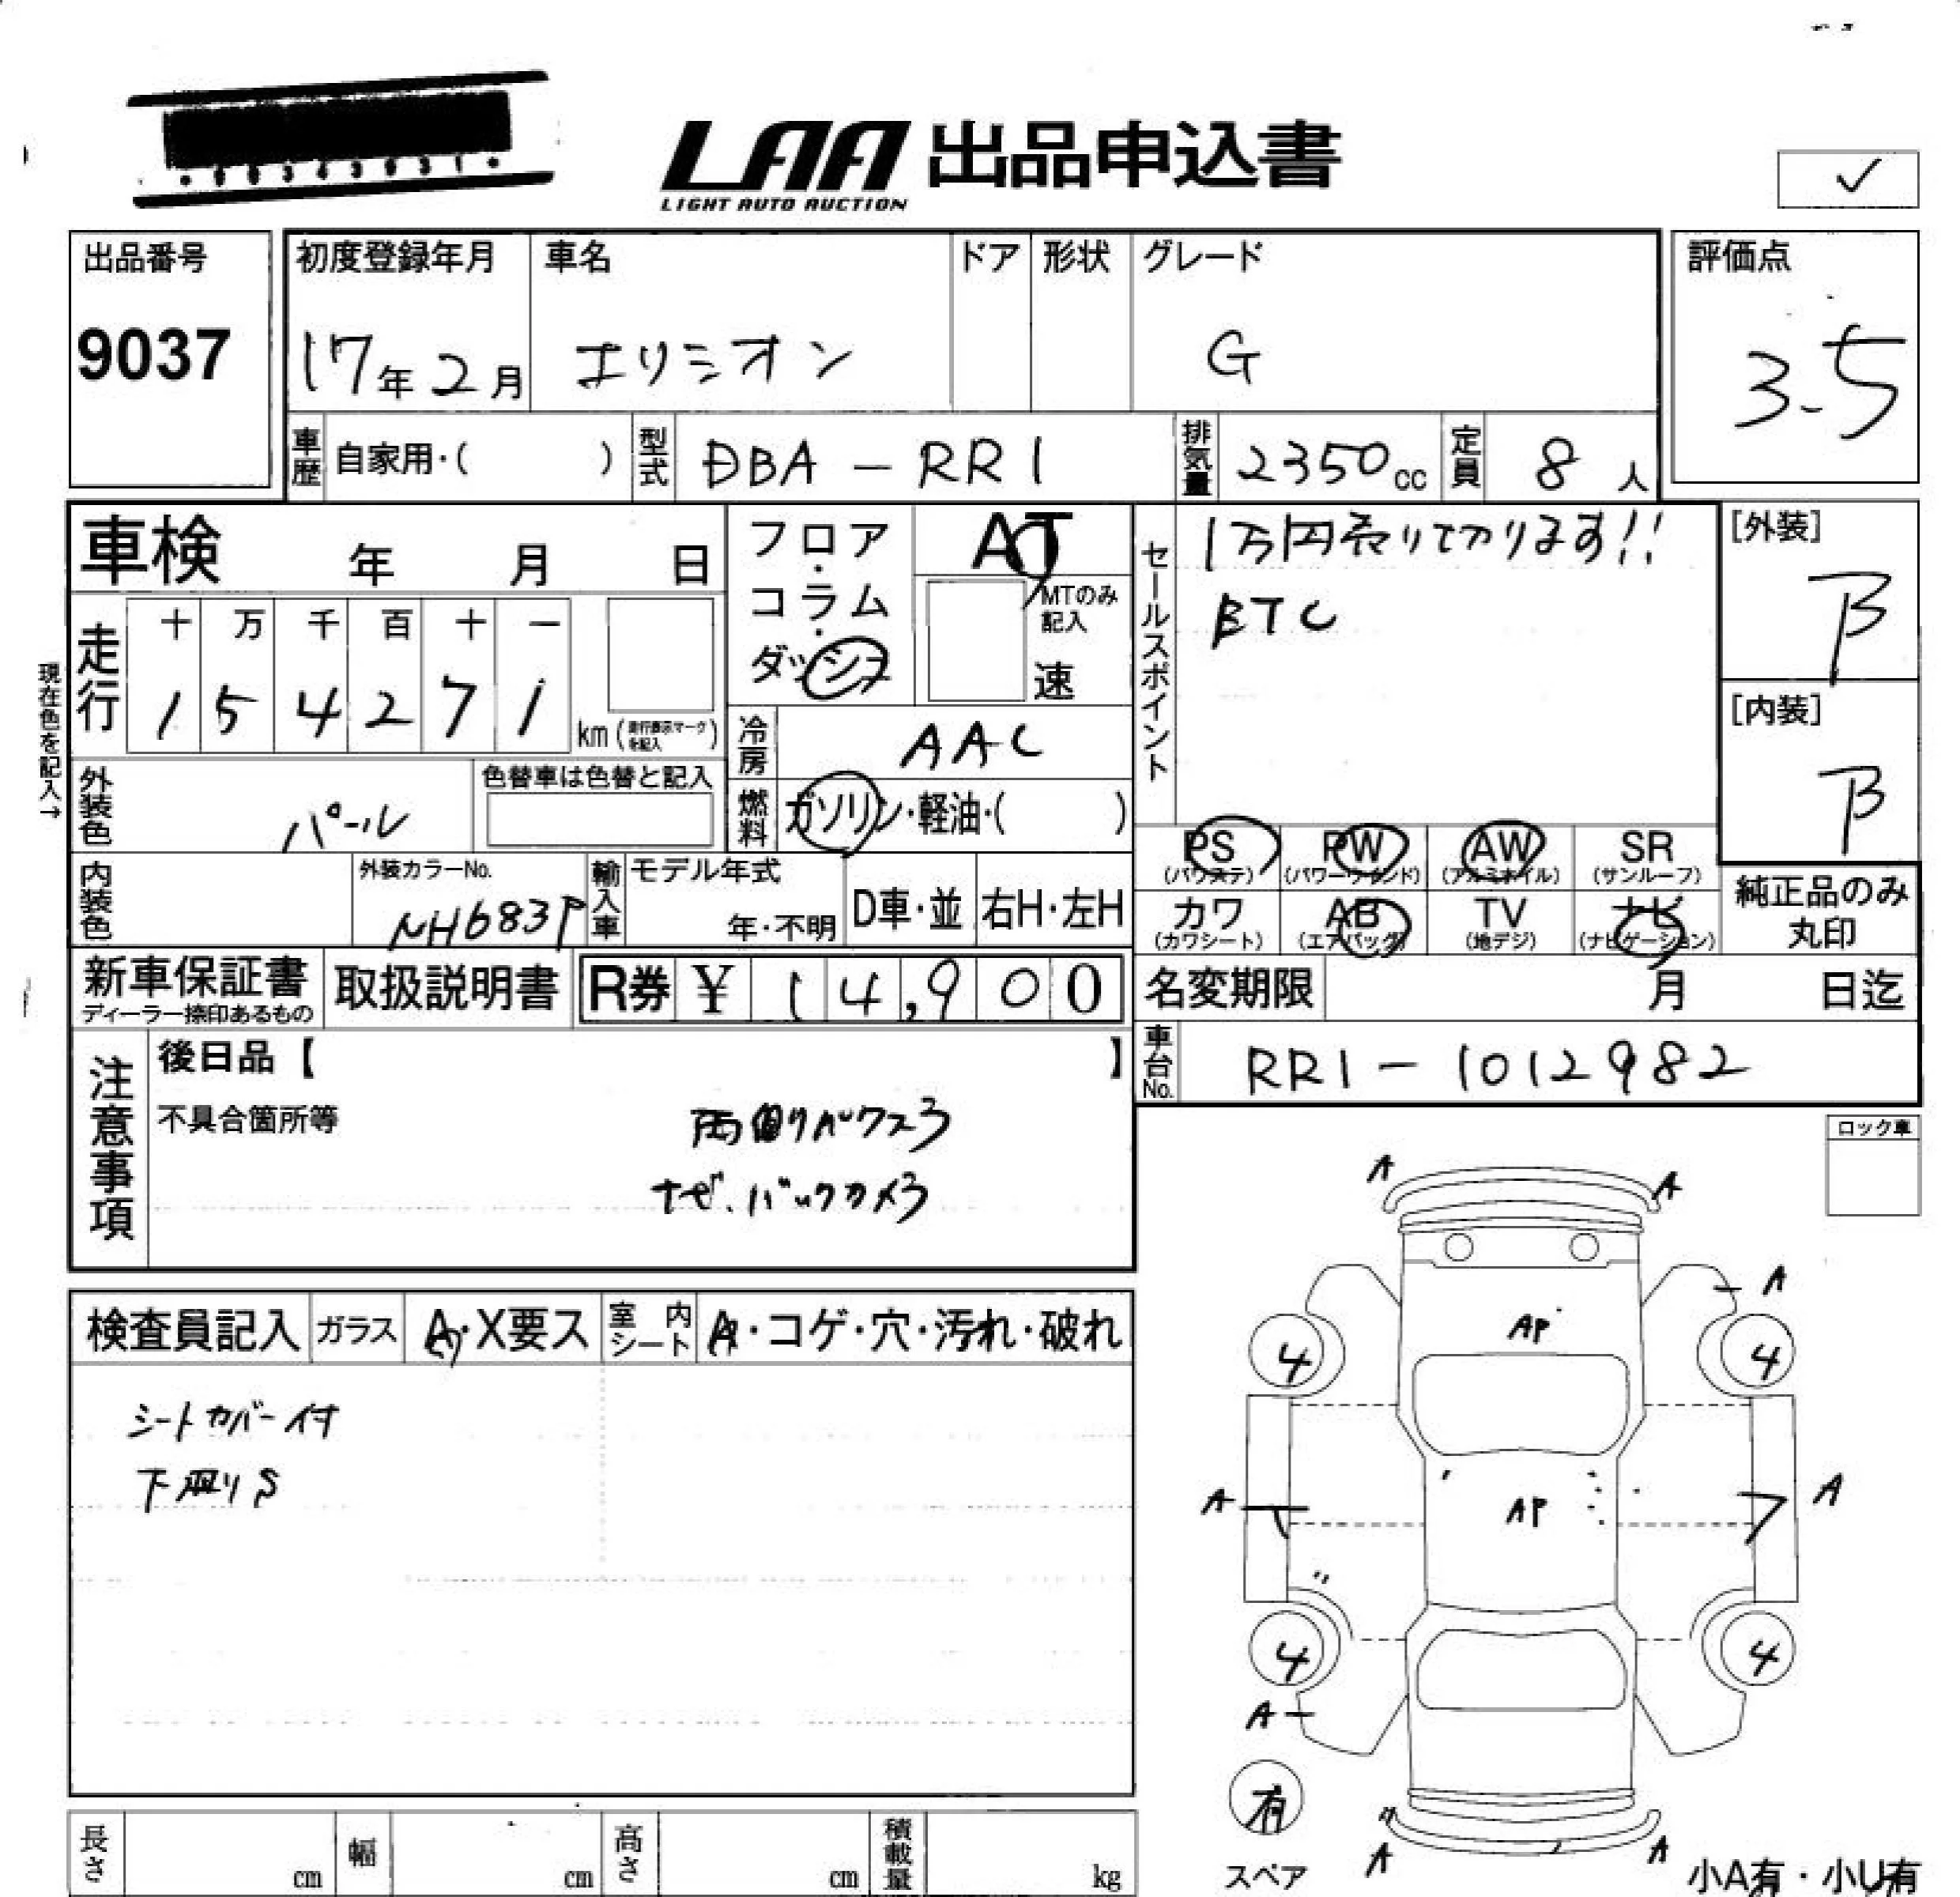 LAA 出品申込書
LIGHT AUTO AUCTION
✓
出品番号
9037
初度登録年月 車名 ドア 形状 グレード
17年2月 エリシオン G
評価点
3.5
車歴 自家用・( ) 型式 DBA-RR1 排気量 2350cc 定員 8人
車検 年 月 日
フロア・コラム・ダッシュ
AT
MTのみ記入
速
セールスポイント
1万円売り切ります!!
ETC
[外装]
B
[内装]
B
現在色を記入→
走行 十 万 千 百 十 一
1 5 4 2 7 1 km (走行表示マークを記入)
冷房 AAC
外装色 パール
色替車は色替と記入
燃料 ガソリン・軽油・( )
PS (パワステ) PW (パワーウインド) AW (アルミホイル) SR (サンルーフ)
カワ (カワシート) AB (エアバッグ) TV (地デジ) ナビ (ナビゲーション)
純正品のみ
丸印
内装色
外装カラーNo.
NH683P
輸入車 モデル年式
年・不明
D車・並 右H・左H
新車保証書
ディーラー捺印あるもの
取扱説明書 R券 ¥ 14,900
名変期限 月 日迄
車台No. RR1-1012982
注意事項
後日品【 】
不具合箇所等
両側パワスラ
ナビ、バックカメラ
ロック車
検査員記入 ガラス A・X要ス 室内シート A・コゲ・穴・汚れ・破れ
シートカバー付
下廻りS
A A
A
AP
4 4
A AP A
4 4
A
有
スペア
A A
小A有・小U有
長さ cm 幅 cm 高さ cm 積載量 kg